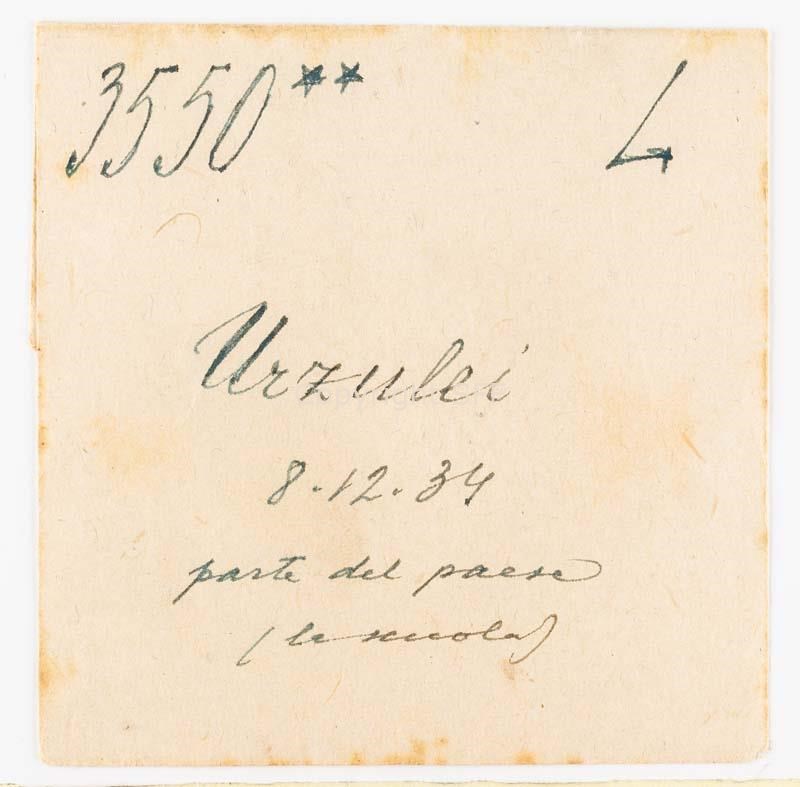 3550** L
Urzulei
8.12.34
parte del paese
(la scuola)